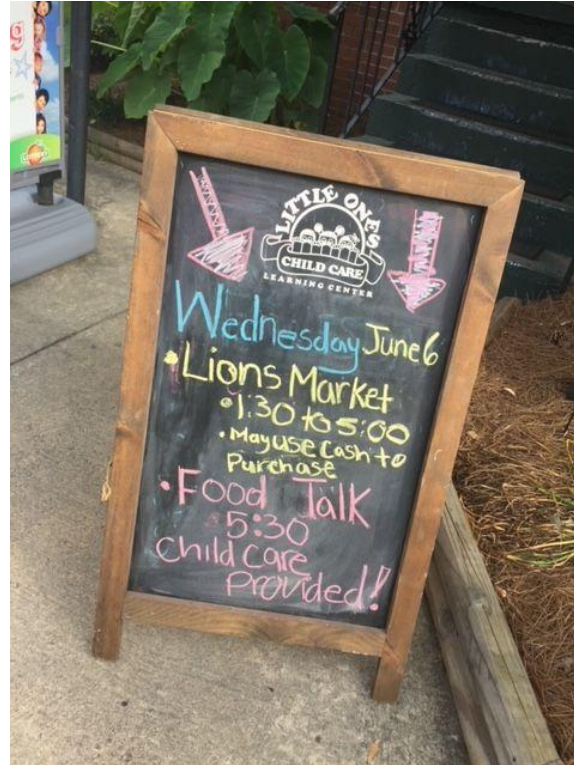 LITTLE ONES
CHILD CARE
LEARNING CENTER
Wednesday June 6
• Lions Market
• 1:30 to 5:00
• May use Cash to
Purchase
• Food Talk
5:30
Child Care
Provided!